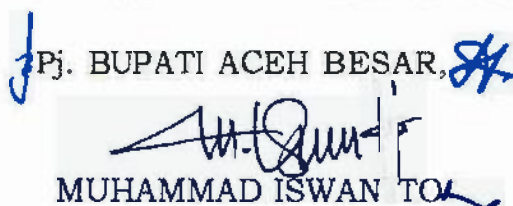 Pj. BUPATI ACEH BESAR,
MUHAMMAD ISWAN TO